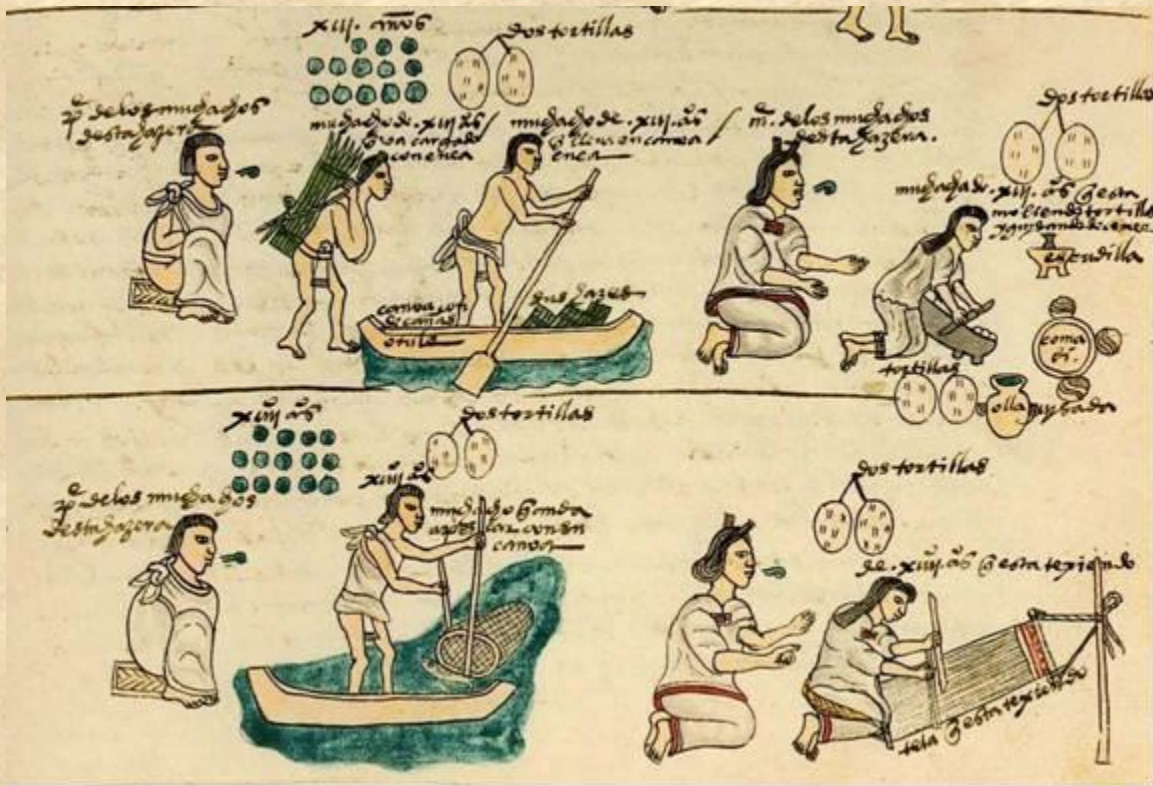 xiii. años
dos tortillas
p̄e de los muchachos
desta hazera
muchacho de .xiii aºs
q̄ va cargado
con enea
muchacho de .xiii. aºs
q̄ lleva en canoa
enea
m̄e. de los muchachos
desta hazera.
dos tortillas
muchacha de .xiii. aºs q̄ esta
moliendo tortillas
y guisando de comer
escudilla
canoa con
canas
hazes
coma
tortillas
olla
xiiii aºs
dos tortillas
p̄e de los muchachos
desta hazera
xiiii aºs
muchacho q̄ anda
a pescar con su
canoa
dos tortillas
de .xiiii. aºs q̄ esta texiendo
tela q̄ esta texiendo